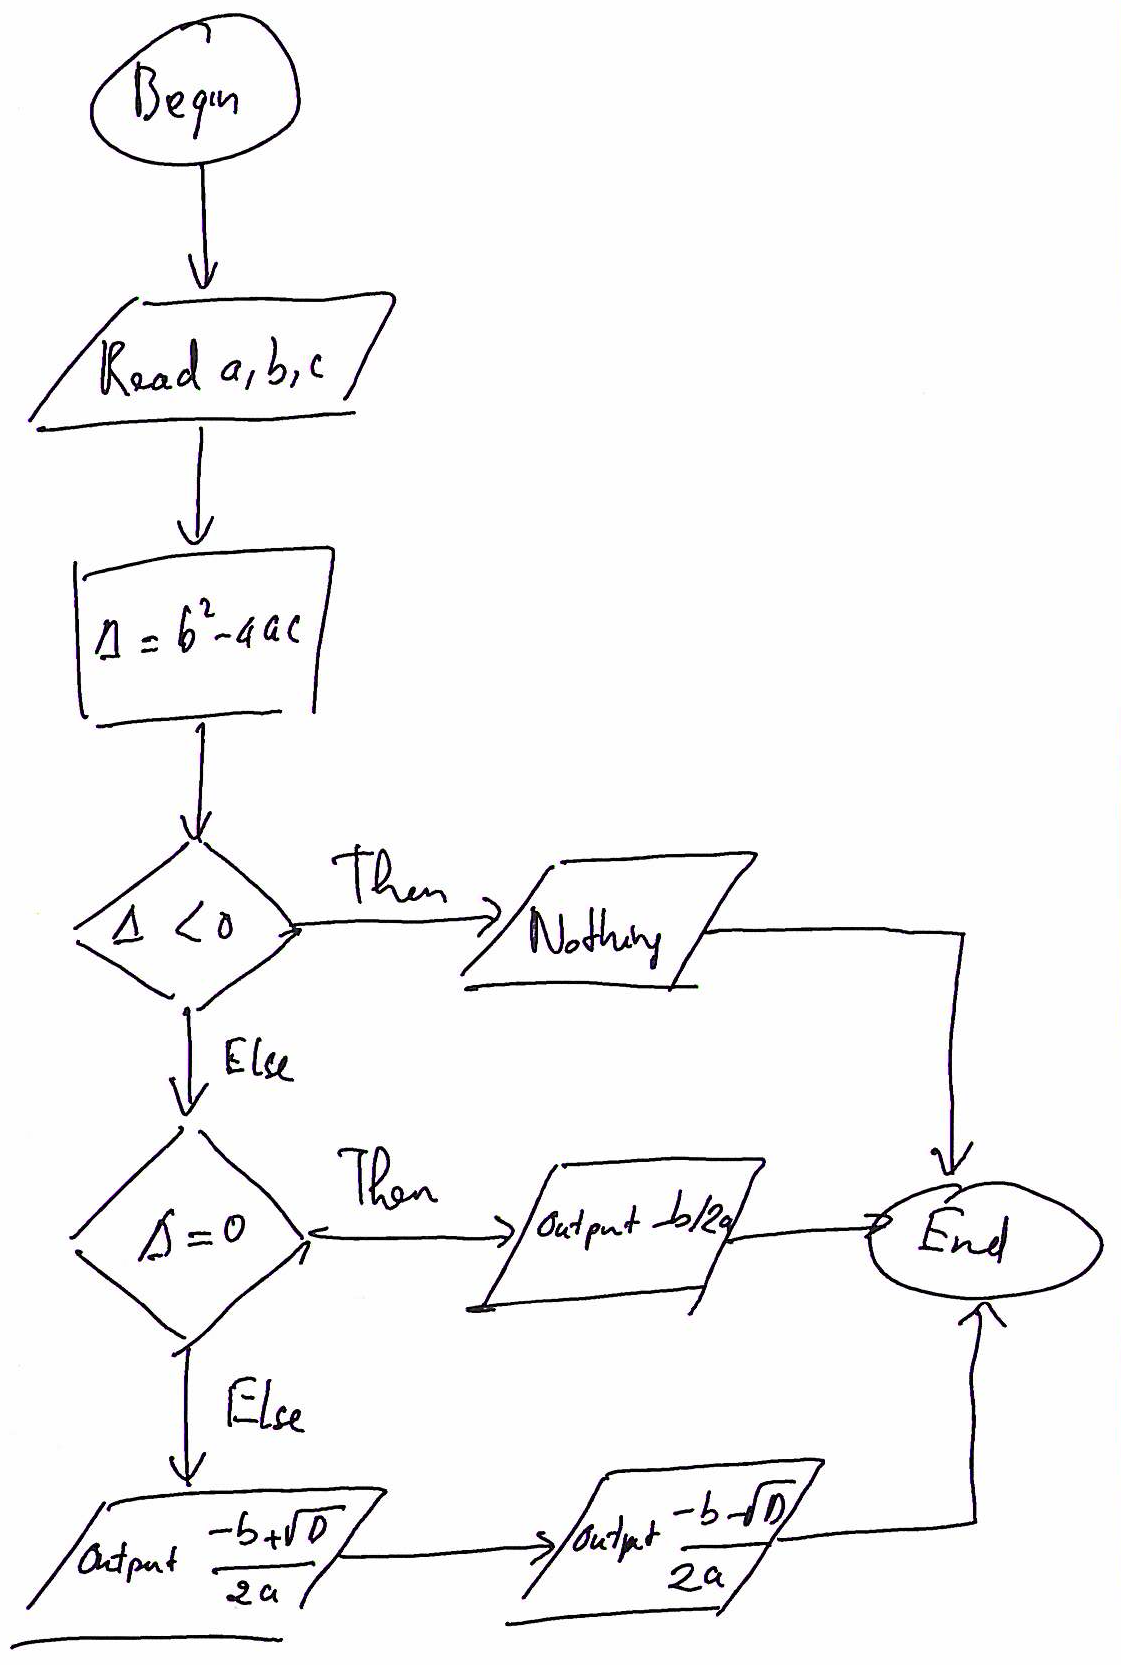 Begin
Read a, b, c
Δ = b² - 4ac
Δ < 0
Then
Nothing
Else
Δ = 0
Then
Output -b/2a
End
Else
Output -b+√D
2a
Output -b-√D
2a